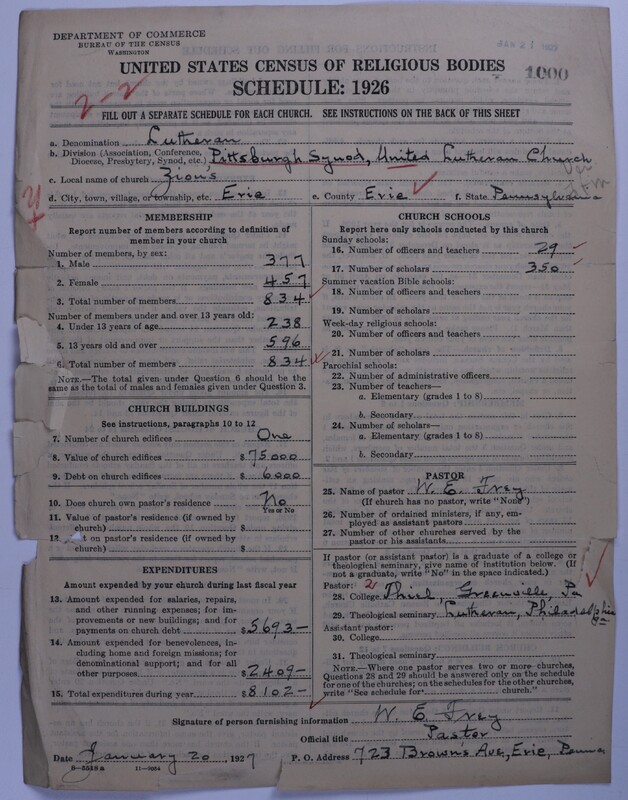 DEPARTMENT OF COMMERCE
BUREAU OF THE CENSUS
WASHINGTON
JAN 21 1927
UNITED STATES CENSUS OF RELIGIOUS BODIES
1000
SCHEDULE: 1926
2-2
FILL OUT A SEPARATE SCHEDULE FOR EACH CHURCH. SEE INSTRUCTIONS ON THE BACK OF THIS SHEET
a. Denomination Lutheran
b. Division (Association, Conference, Diocese, Presbytery, Synod, etc.) Pittsburgh Synod, United Lutheran Church
c. Local name of church Zion's
d. City, town, village, or township, etc. Erie e. County Erie f. State Pennsylvania
MEMBERSHIP
Report number of members according to definition of
member in your church
Number of members, by sex:
1. Male 377
2. Female 457
3. Total number of members 834
Number of members under and over 13 years old:
4. Under 13 years of age 238
5. 13 years old and over 596
6. Total number of members 834
NOTE.—The total given under Question 6 should be
same as the total of males and females given under Question 3.
CHURCH BUILDINGS
See instructions, paragraphs 10 to 12
7. Number of church edifices One
8. Value of church edifices $75000
9. Debt on church edifices $6000
10. Does church own pastor's residence No
Yes or No
11. Value of pastor's residence (if owned by
church) $
12. on pastor's residence (if owned by
church) $
EXPENDITURES
Amount expended by your church during last fiscal year
13. Amount expended for salaries, repairs,
and other running expenses; for im-
provements or new buildings; and for
payments on church debt $5693—
14. Amount expended for benevolences, in-
cluding home and foreign missions; for
denominational support; and for all
other purposes $2409—
15. Total expenditures during year $8102—
CHURCH SCHOOLS
Report here only schools conducted by this church
Sunday schools:
16. Number of officers and teachers 29
17. Number of scholars 350
Summer vacation Bible schools:
18. Number of officers and teachers
19. Number of scholars
Week-day religious schools:
20. Number of officers and teachers
21. Number of scholars
Parochial schools:
22. Number of administrative officers
23. Number of teachers—
a. Elementary (grades 1 to 8)
b. Secondary
24. Number of scholars—
a. Elementary (grades 1 to 8)
b. Secondary
PASTOR
25. Name of pastor W. E. Frey
(If church has no pastor, write "None")
26. Number of ordained ministers, if any, em-
ployed as assistant pastors
27. Number of other churches served by the
pastor or his assistants
If pastor (or assistant pastor) is a graduate of a college or
theological seminary, give name of institution below. (If
not a graduate, write "No" in the space indicated.)
Pastor: 2
28. College Thiel, Greenville, Pa
29. Theological seminary Lutheran, Philadelphia
Assistant pastor:
30. College
31. Theological seminary
NOTE.—Where one pastor serves two or more churches,
Questions 28 and 29 should be answered only on the schedule
for one of the churches; on the schedules for the other churches,
write "See schedule for church."
Signature of person furnishing information W. E. Frey
Official title Pastor
Date January 20, 1927 P. O. Address 723 Brown's Ave, Erie, Penna
8-5518 a 11-9084